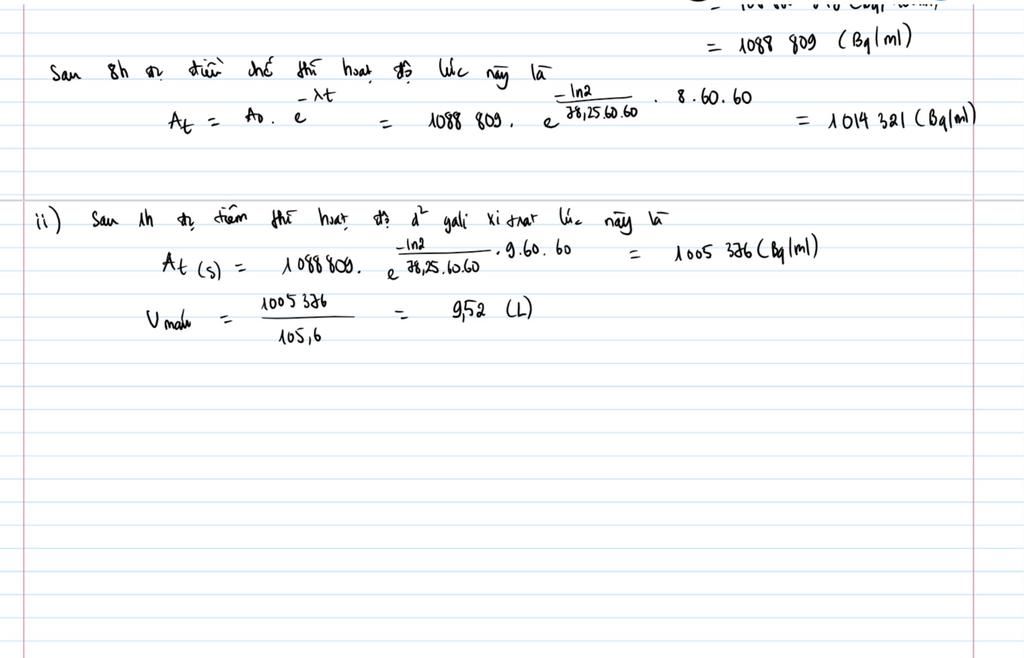 = 1088 809 (Bq/ml)
Sau 8h từ điều chế thì hoạt độ lúc này là
At = A0 . e^-λt = 1088 809 . e^(-ln2/78,25.60.60 . 8.60.60) = 1014 321 (Bq/ml)
ii) Sau 1h từ tiêm thì hoạt độ d² gali xitrat lúc này là
At (s) = 1088809. e^(-ln2/78,25.60.60 . 9.60.60) = 1005 376 (Bq/ml)
Vmáu = 1005 376 / 105,6 = 9,52 (L)